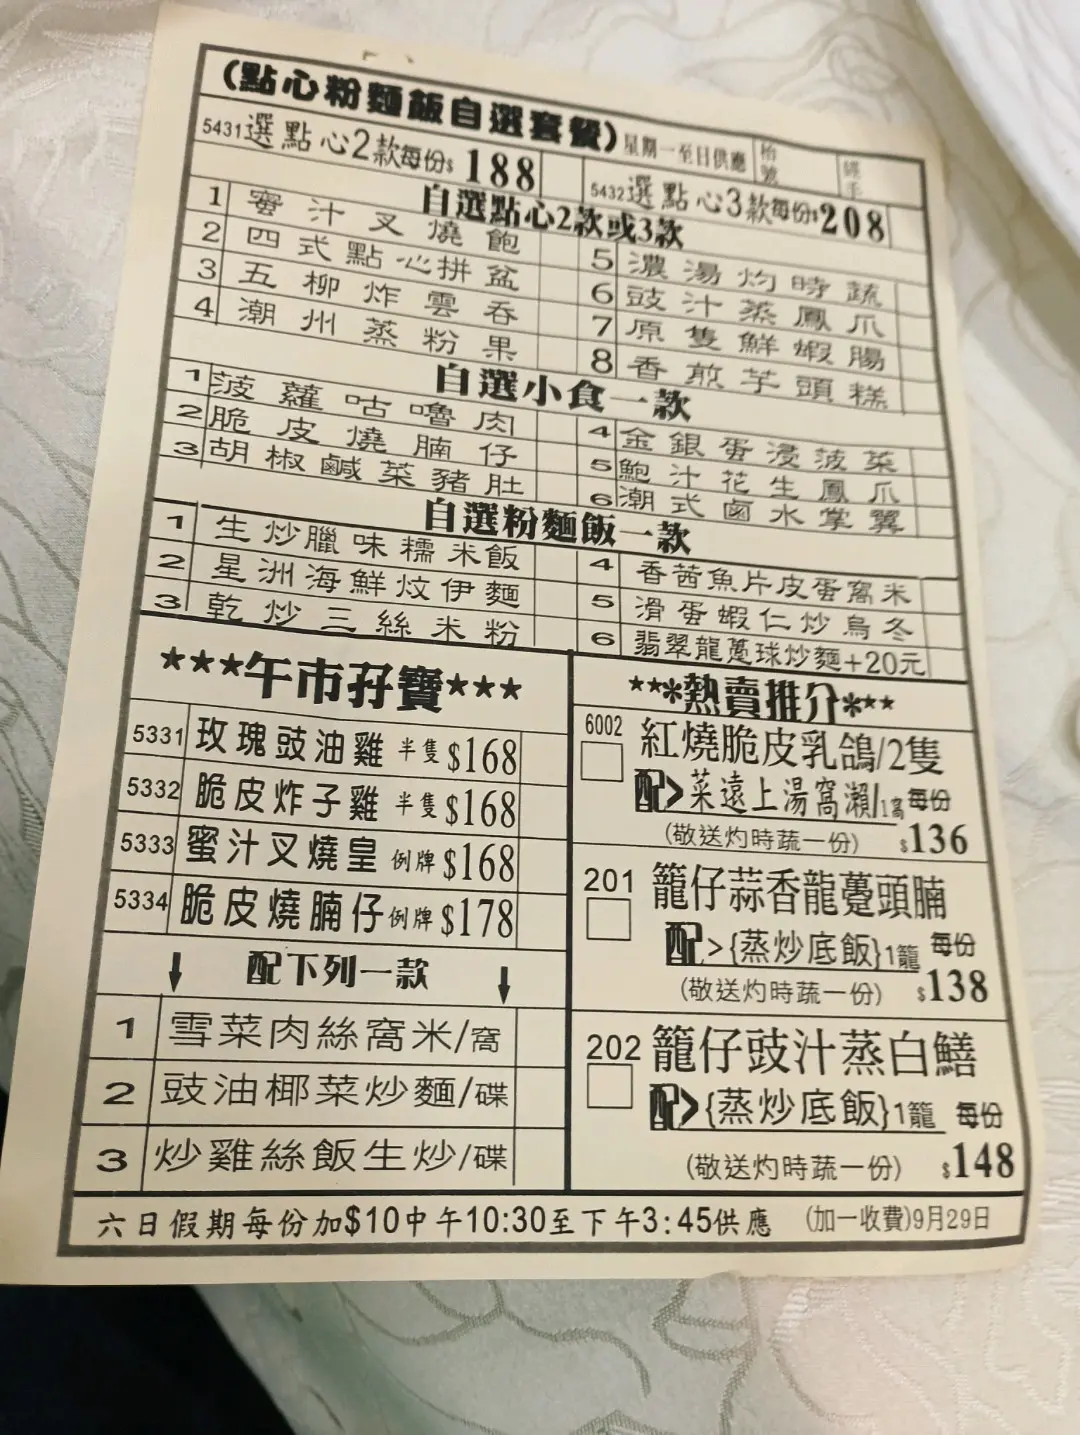 (點心粉麵飯自選套餐) 星期一至日供應 枱號 經手
5431 選點心2款每份$188 5432 選點心3款每份$208
自選點心2款或3款
1 蜜汁叉燒飽
2 四式點心拼盆
3 五柳炸雲吞
4 潮州蒸粉果
5 濃湯灼時蔬
6 豉汁蒸鳳爪
7 原隻鮮蝦腸
8 香煎芋頭糕
自選小食一款
1 菠蘿咕嚕肉
2 脆皮燒腩仔
3 胡椒鹹菜豬肚
4 金銀蛋浸菠菜
5 鮑汁花生鳳爪
6 潮式鹵水掌翼
自選粉麵飯一款
1 生炒臘味糯米飯
2 星洲海鮮炆伊麵
3 乾炒三絲米粉
4 香茜魚片皮蛋窩米
5 滑蛋蝦仁炒烏冬
6 翡翠龍躉球炒麵+20元
***午市孖寶***
5331 玫瑰豉油雞 半隻 $168
5332 脆皮炸子雞 半隻 $168
5333 蜜汁叉燒皇 例牌 $168
5334 脆皮燒腩仔 例牌 $178
配下列一款
1 雪菜肉絲窩米/窩
2 豉油椰菜炒麵/碟
3 炒雞絲飯生炒/碟
***熱賣推介***
6002 紅燒脆皮乳鴿/2隻
配>菜遠上湯窩瀨/1窩 每份
(敬送灼時蔬一份) $136
201 籠仔蒜香龍躉頭腩
配>{蒸炒底飯}1籠 每份
(敬送灼時蔬一份) $138
202 籠仔豉汁蒸白鱔
配>{蒸炒底飯}1籠 每份
(敬送灼時蔬一份) $148
六日假期每份加$10中午10:30至下午3:45供應 (加一收費)9月29日